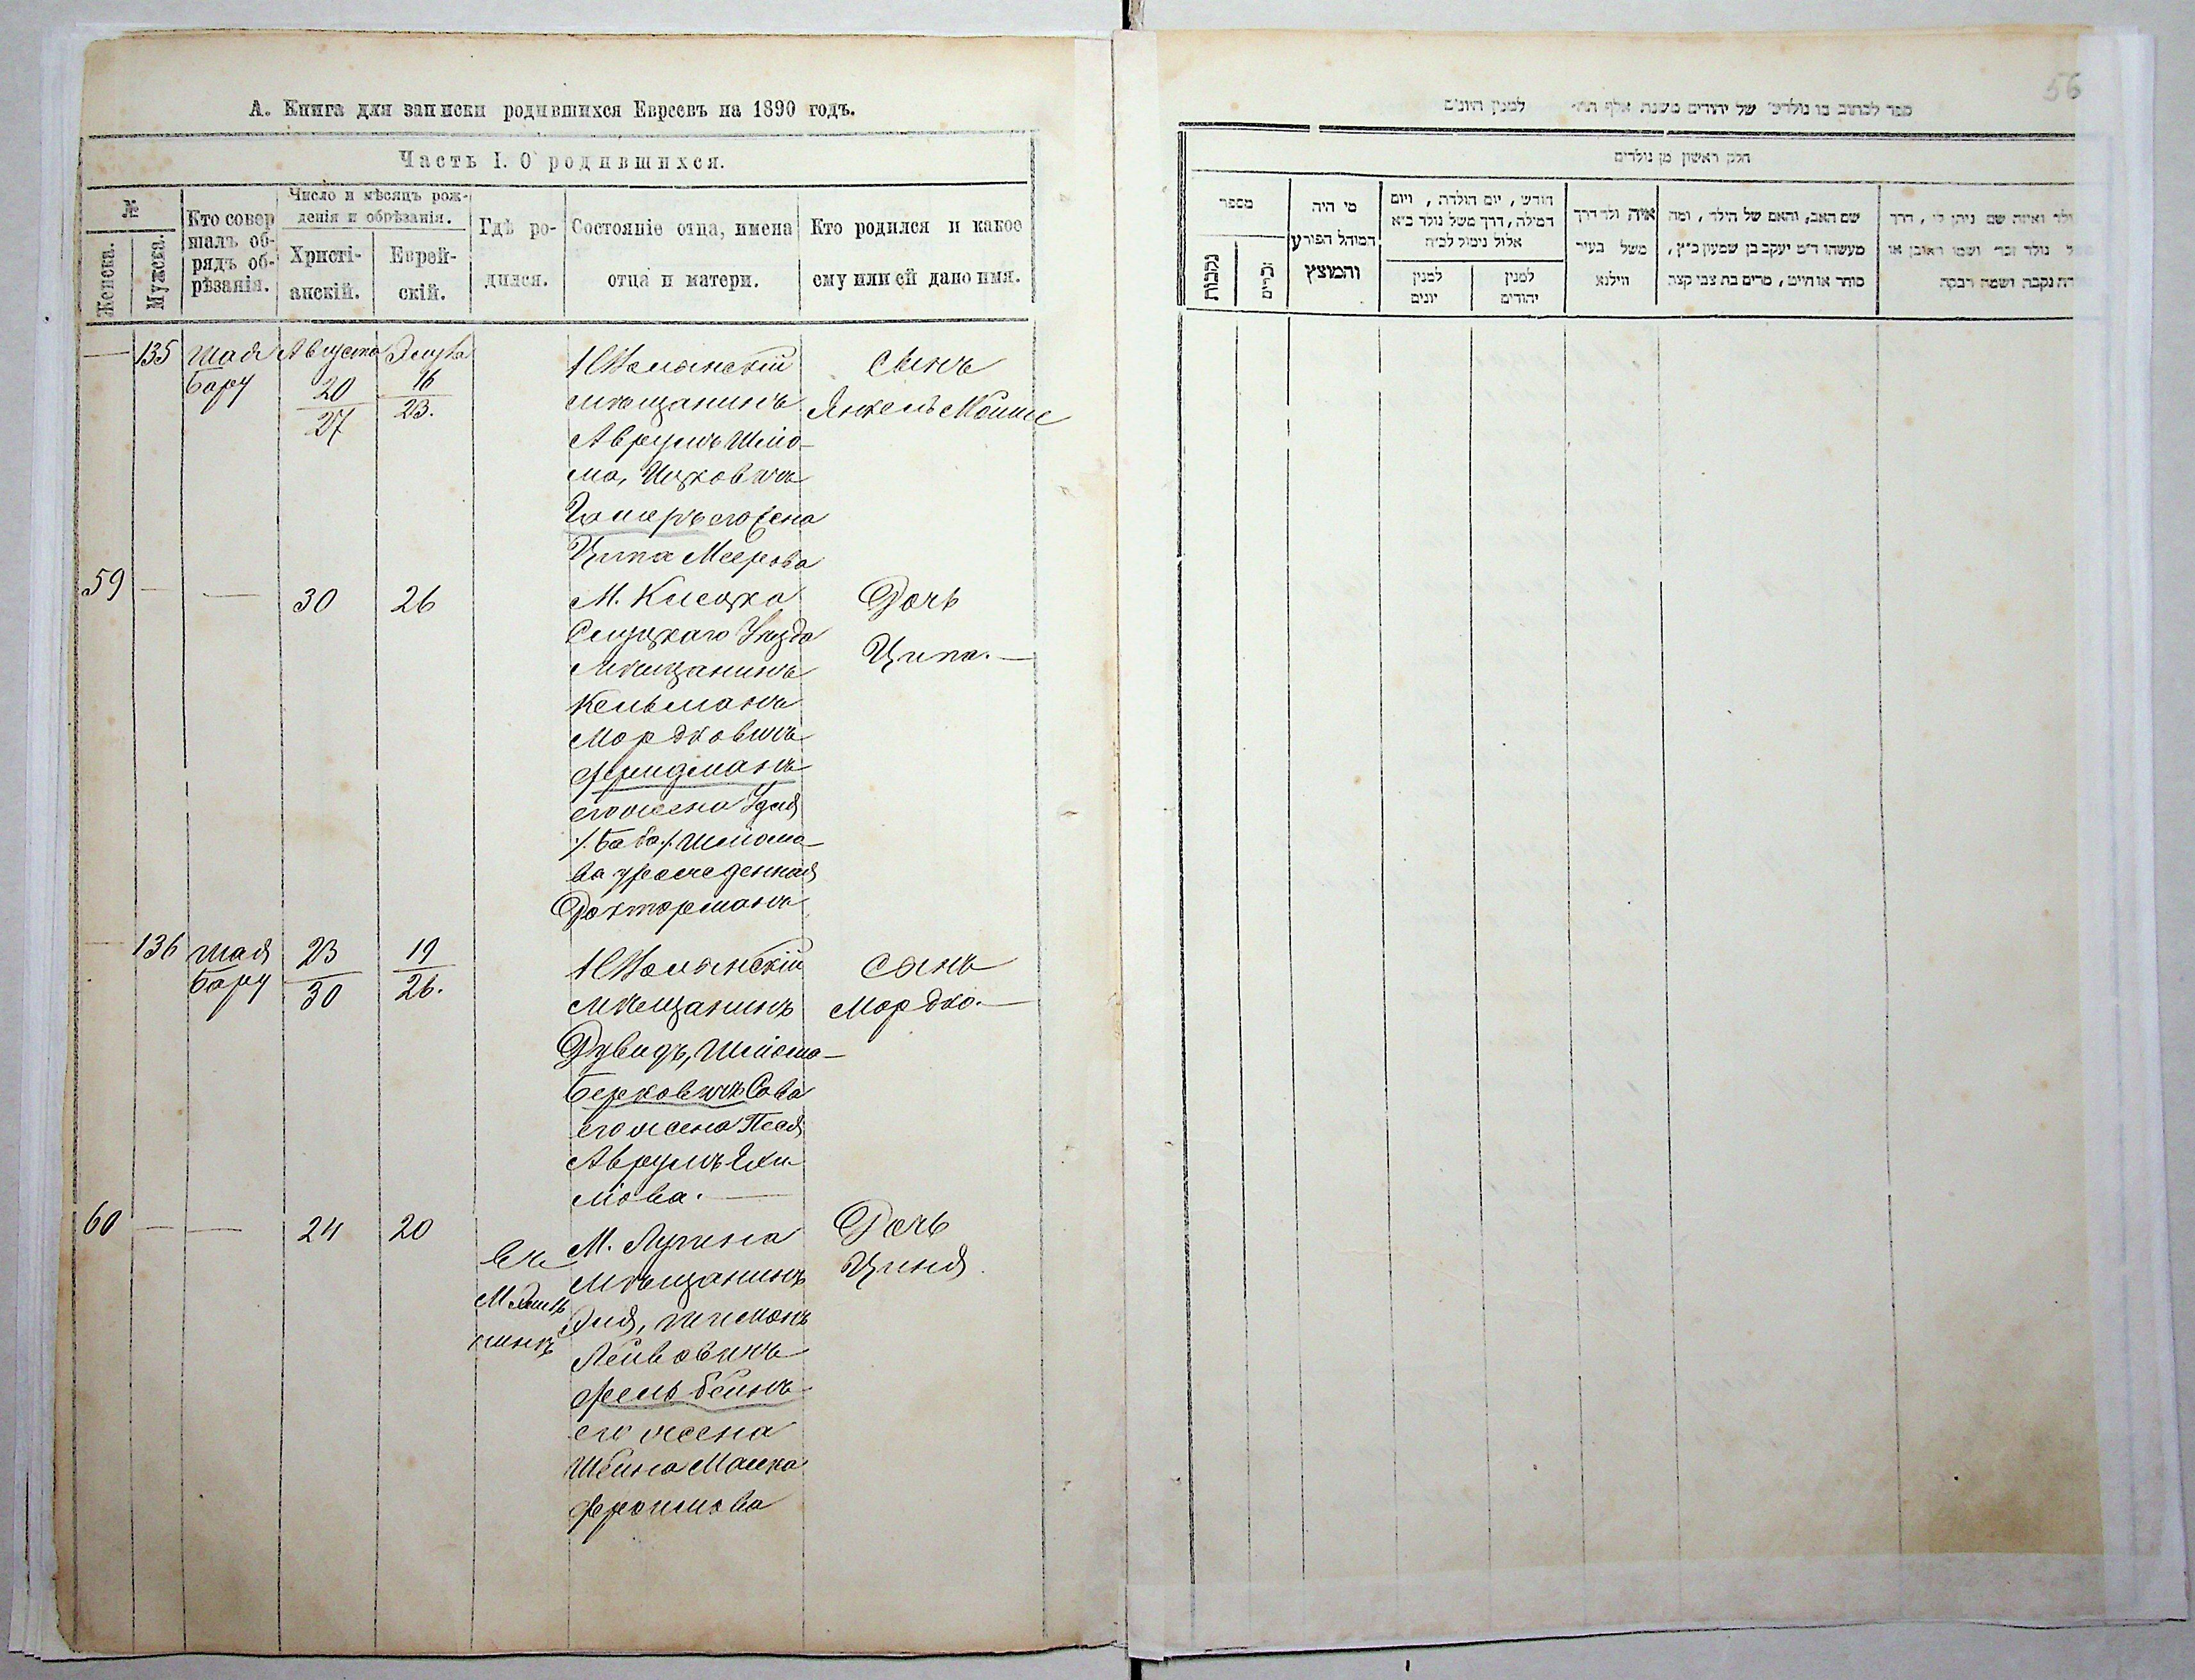 А. Книга для записки родившихся Евреевъ на 1890 годъ.
Часть I. О родившихся.
№
Женска.
Мужска.
Кто совер
шалъ об-
рядъ об-
рѣзанія.
Число и мѣсяцъ рож-
денія и обрѣзанія.
Христі-
анскій.
Еврей-
скій.
Гдѣ ро-
дился.
Состояніе отца, имена
отца и матери.
Кто родился и какое
ему или ей дано имя.
— 135
Шая
Бару
Августа
20
27
Элула
16
23.
мѣщанинъ
Аврумъ Шло-
ма, Ицковичъ
его жена
Ципа Меерова
Сынъ
Янкель Мовше
59 — —
30
26
М.
Слуцкаго Уѣзда
мѣщанинъ
Кельманъ
Мордковичъ
Фридманъ
его жена Удля
/. Баба ./ Шлемо-
ва урожденная
Докторманъ
Дочь
Ципа. —
— 136
Шая
Бару
23
30
19
26.
мѣщанинъ
Дувидъ, Шлема-
Берковичъ Сова
его жена Песя
Аврумъ
мова. —
Сынъ
Мордко. —
60 — —
24
20
М.
мѣщанинъ
Лейбовичъ
его жена
Шейна Машка
Фроимова
Дочь
Циня
56
ספר לכתוב בו נולדים של יהודים משנת אלף תת׳ למנין היונים
חלק ראשון מן נולדים
מספר
נקבות
זכרים
מי היה
המוהל הפורע
והמוצץ
חודש, יום הולדת, ויום
המילה, דרך משל נולד בי״א
אלול נימול לכ״ח
למנין
יונים
למנין
יהודים
איה ולד דרך
משל בעיר
ווילנא
שם האב, והאם של הילד, ומה
מעשהו ד״מ יעקב בן שמעון כ״ץ,
סוחר או חייט, מרים בת צבי קצב
ולד ואיזה שם ניתן לו, דרך
נולד זכר ושמו ראובן או
נקבה ושמה רבקה